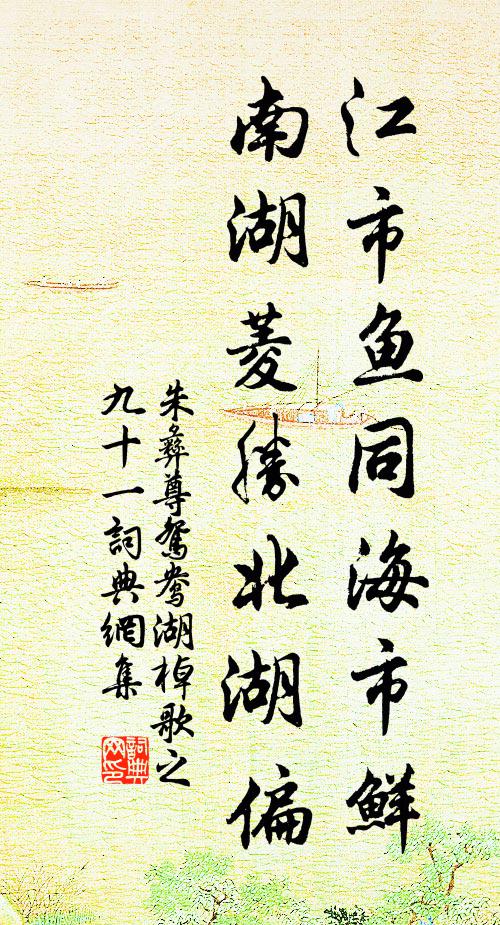 江市鱼同海市鮮
南湖菱勝北湖偏
朱彝尊鴛鴦湖棹歌之
九十一詞典網集
詞典
网印